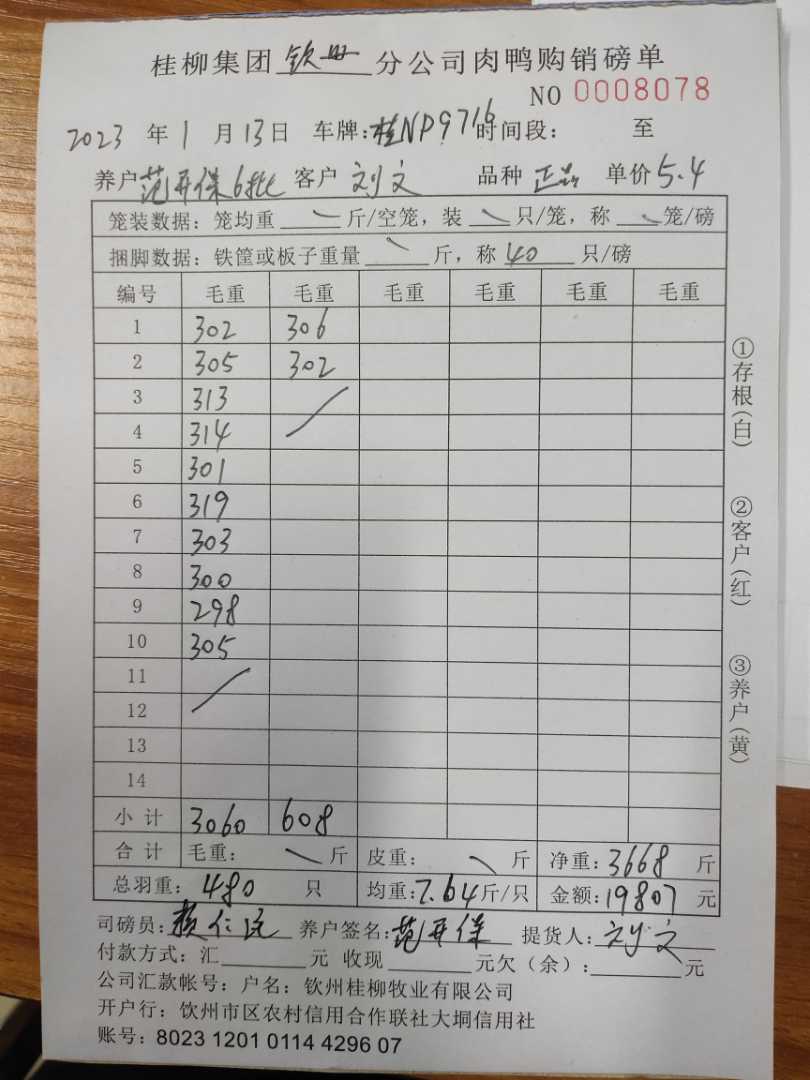 桂柳集团 钦州 分公司肉鸭购销磅单
NO 0008078
2023 年 1 月 13 日 车牌:桂NP9716 时间段: 至
养户 范开保6批 客户 刘文 品种 正品 单价 5.4
笼装数据: 笼均重 斤/空笼, 装 只/笼, 称 笼/磅
捆脚数据: 铁筐或板子重量 斤, 称 40 只/磅
编号 毛重 毛重 毛重 毛重 毛重 毛重
1 302 306
2 305 302
3 313
4 314
5 301
6 319
7 303
8 300
9 298
10 305
11
12
13
14
小计 3060 608
合计 毛重: 斤 皮重: 斤 净重:3668 斤
总羽重: 480 只 均重:7.64斤/只 金额:19807 元
司磅员: 养户签名:范开保 提货人:刘文
付款方式: 汇 元 收现 元欠(余): 元
公司汇款帐号: 户名: 钦州桂柳牧业有限公司
开户行: 钦州市区农村信用合作联社大垌信用社
账号: 8023 1201 0114 4296 07
①存根(白)
②客户(红)
③养户(黄)